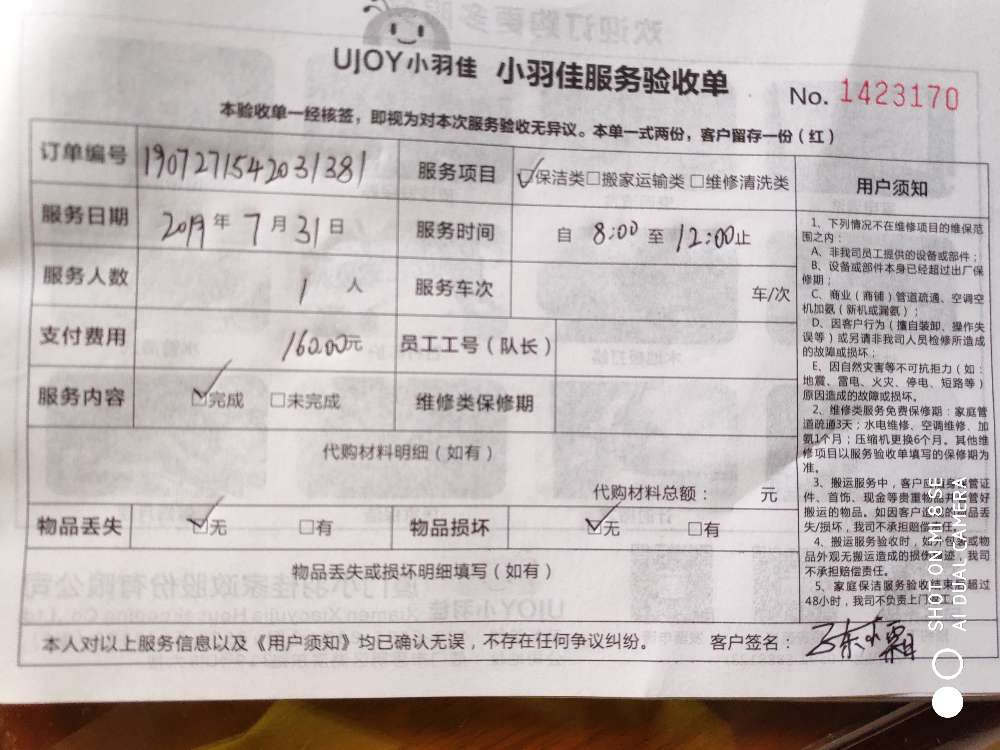 UJOY小羽佳 小羽佳服务验收单
No. 1423170
本验收单一经核签，即视为对本次服务验收无异议。本单一式两份，客户留存一份（红）
订单编号 1907271542031381 服务项目 保洁类 搬家运输类 维修清洗类
服务日期 2019年7月31日 服务时间 自 8:00 至 12:00止
服务人数 1 人 服务车次 车/次
支付费用 160.00元 员工工号（队长）
服务内容 完成 未完成 维修类保修期
代购材料明细（如有）
代购材料总额： 元
物品丢失 无 有 物品损坏 无 有
物品丢失或损坏明细填写（如有）
本人对以上服务信息以及《用户须知》均已确认无误，不存在任何争议纠纷。 客户签名：
用户须知
1、下列情况不在维修项目的维保范
围之内：
A、非我司员工提供的设备或部件；
B、设备或部件本身已经超过出厂保
修期；
C、商业（商铺）管道疏通、空调空
机加氨（新机或漏氨）；
D、因客户行为（擅自装卸、操作失
误等）或另请非我司人员检修所造成
的故障或损坏；
E、因自然灾害等不可抗拒力（如：
地震、雷电、火灾、停电、短路等）
原因造成的故障或损坏。
2、维修类服务免费保修期：家庭管
道疏通3天；水电维修、空调维修、加
氨1个月；压缩机更换6个月。其他维
修项目以服务验收单填写的保修期为
准。
3、搬运服务中，客户应 管证
件、首饰、现金等贵重物品并 管好
搬运的物品。如因客户该 品丢
失/损坏，我司不承担赔偿责任。
4、搬运服务验收时，如外包装或物
品外观无搬运造成的损伤痕迹，我司
不承担赔偿责任。
5、家庭保洁服务验收结束 超过
48小时，我司不负责上门 工。
SHOT ON MI 8 SE
AI DUAL CAMERA